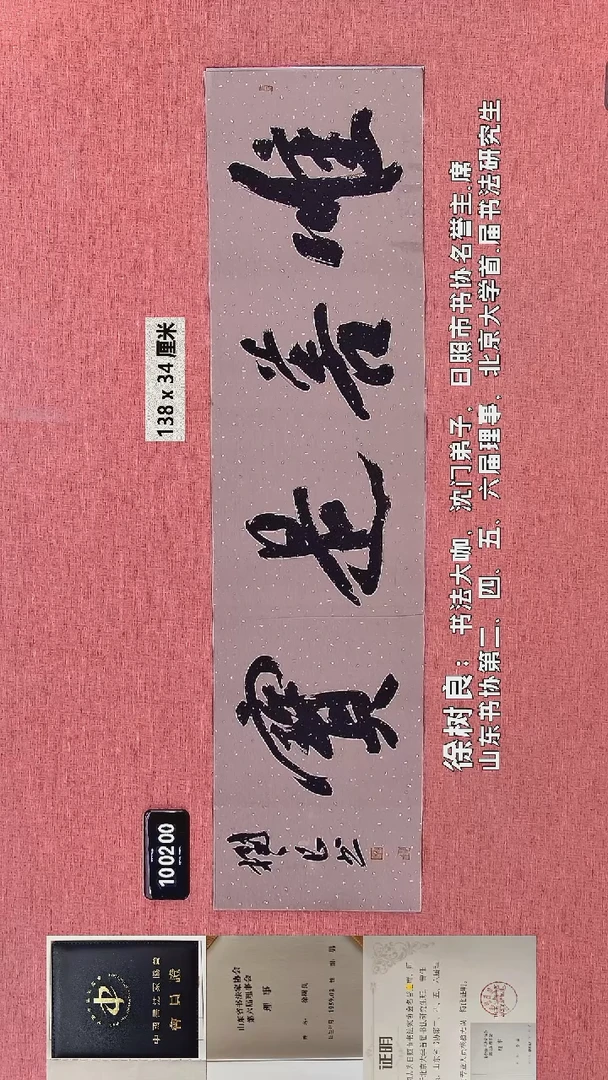 138 x 34 厘米
惟善是寶
樹良书
徐树良：书法大咖，沈门弟子，日照市书协名誉主.席
山东书协第二、四、五、六届理事，北京大学首.届书法研究生
100200
中國書法家協會
會員證
山东省书法家协会
第六届理事会
理事
证明